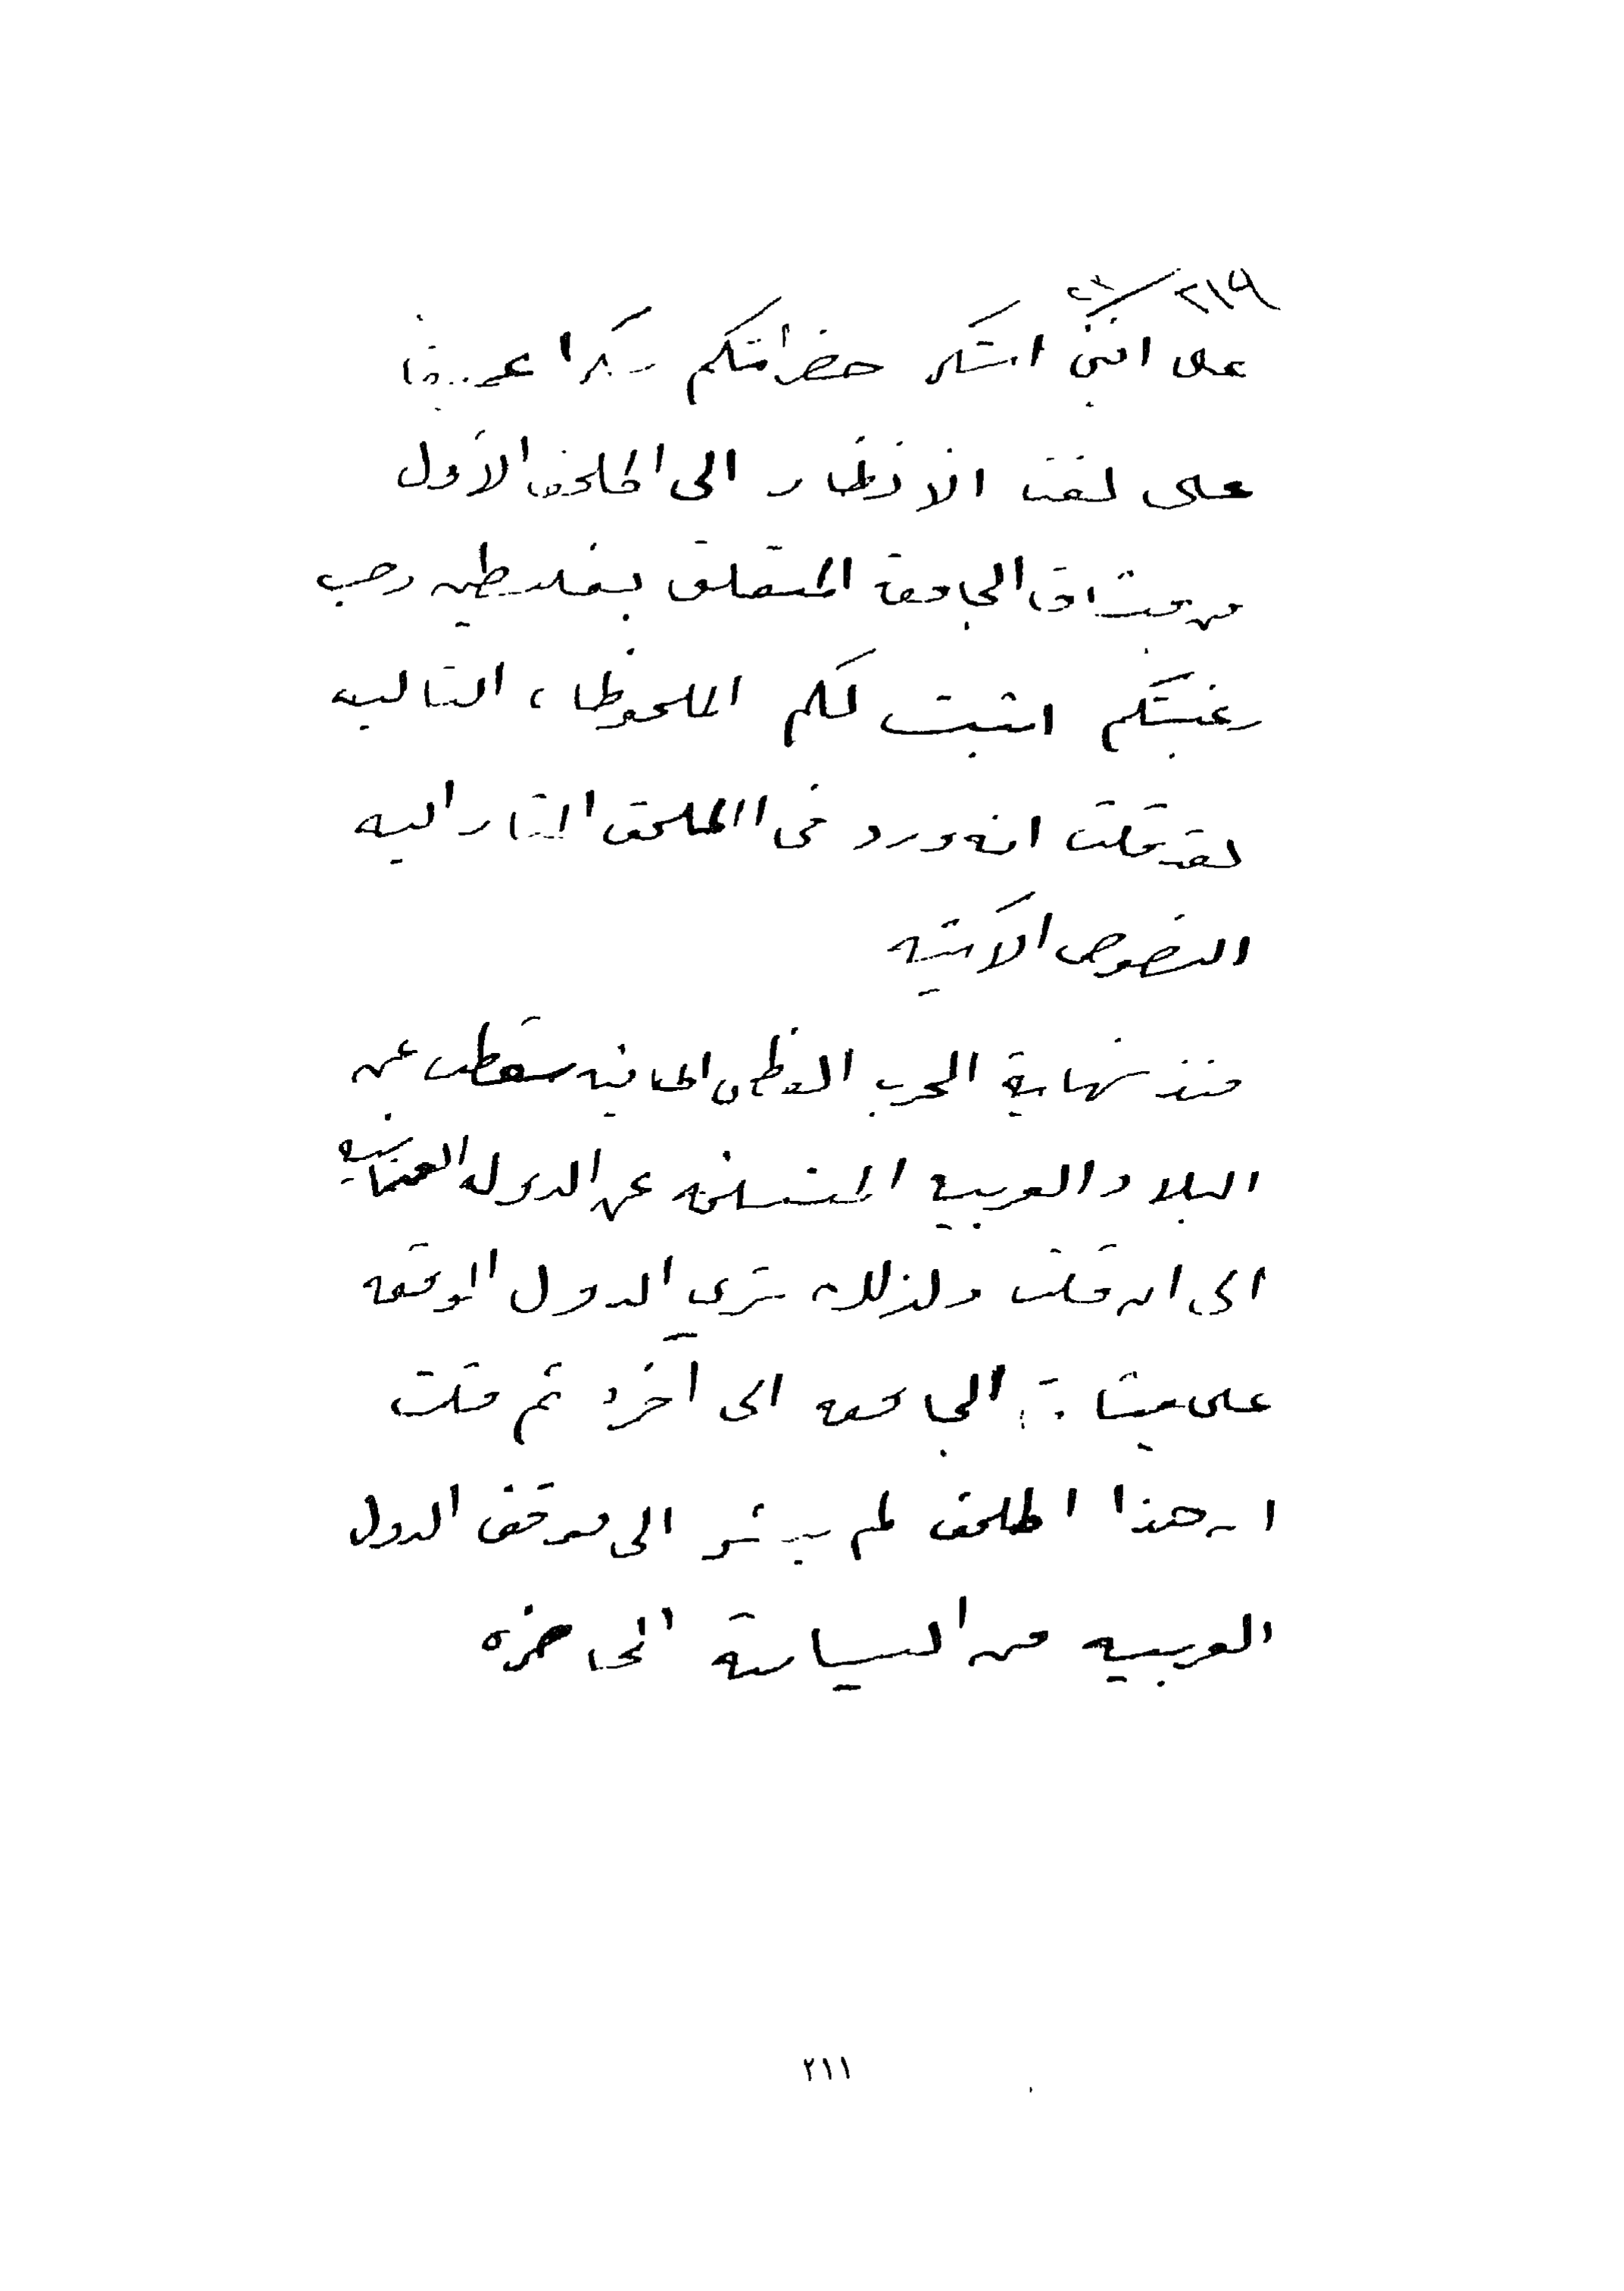 ٢١٩/٢٣
على انني اشكر حضراتكم شكرا عميقا
على لفت الانظار الى الملحق الاول
من ميثاق الجامعة المتعلق بفلسطين وحسب
رغبتكم اثبت لكم الملحوظات التاليه
لقد قلت انه ورد في الملحق المشار اليه
النصوص الآتيه
منذ نهاية الحرب العظمى الماضيه سقطت عن
البلاد العربيه المنسلخه عن الدوله العثمانيه
الى ان قلت ولذلك ترى الدول الموقعه
على ميثاق الجامعه الى آخره ثم قلت
ان هذا الملحق لم يشر الى موقف الدول
العربيه من السياسة الحاضره
٢١١